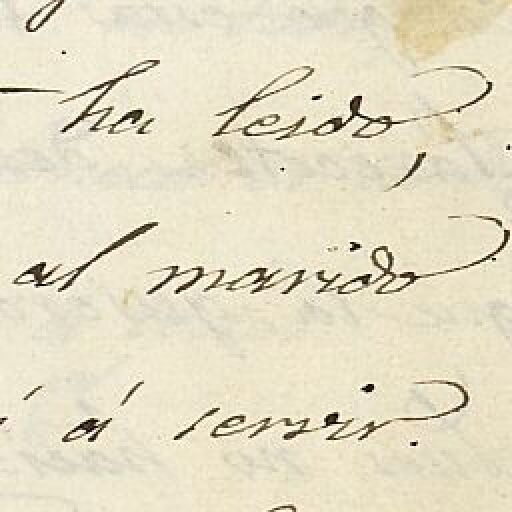 ha leido,
al marido
á servir.